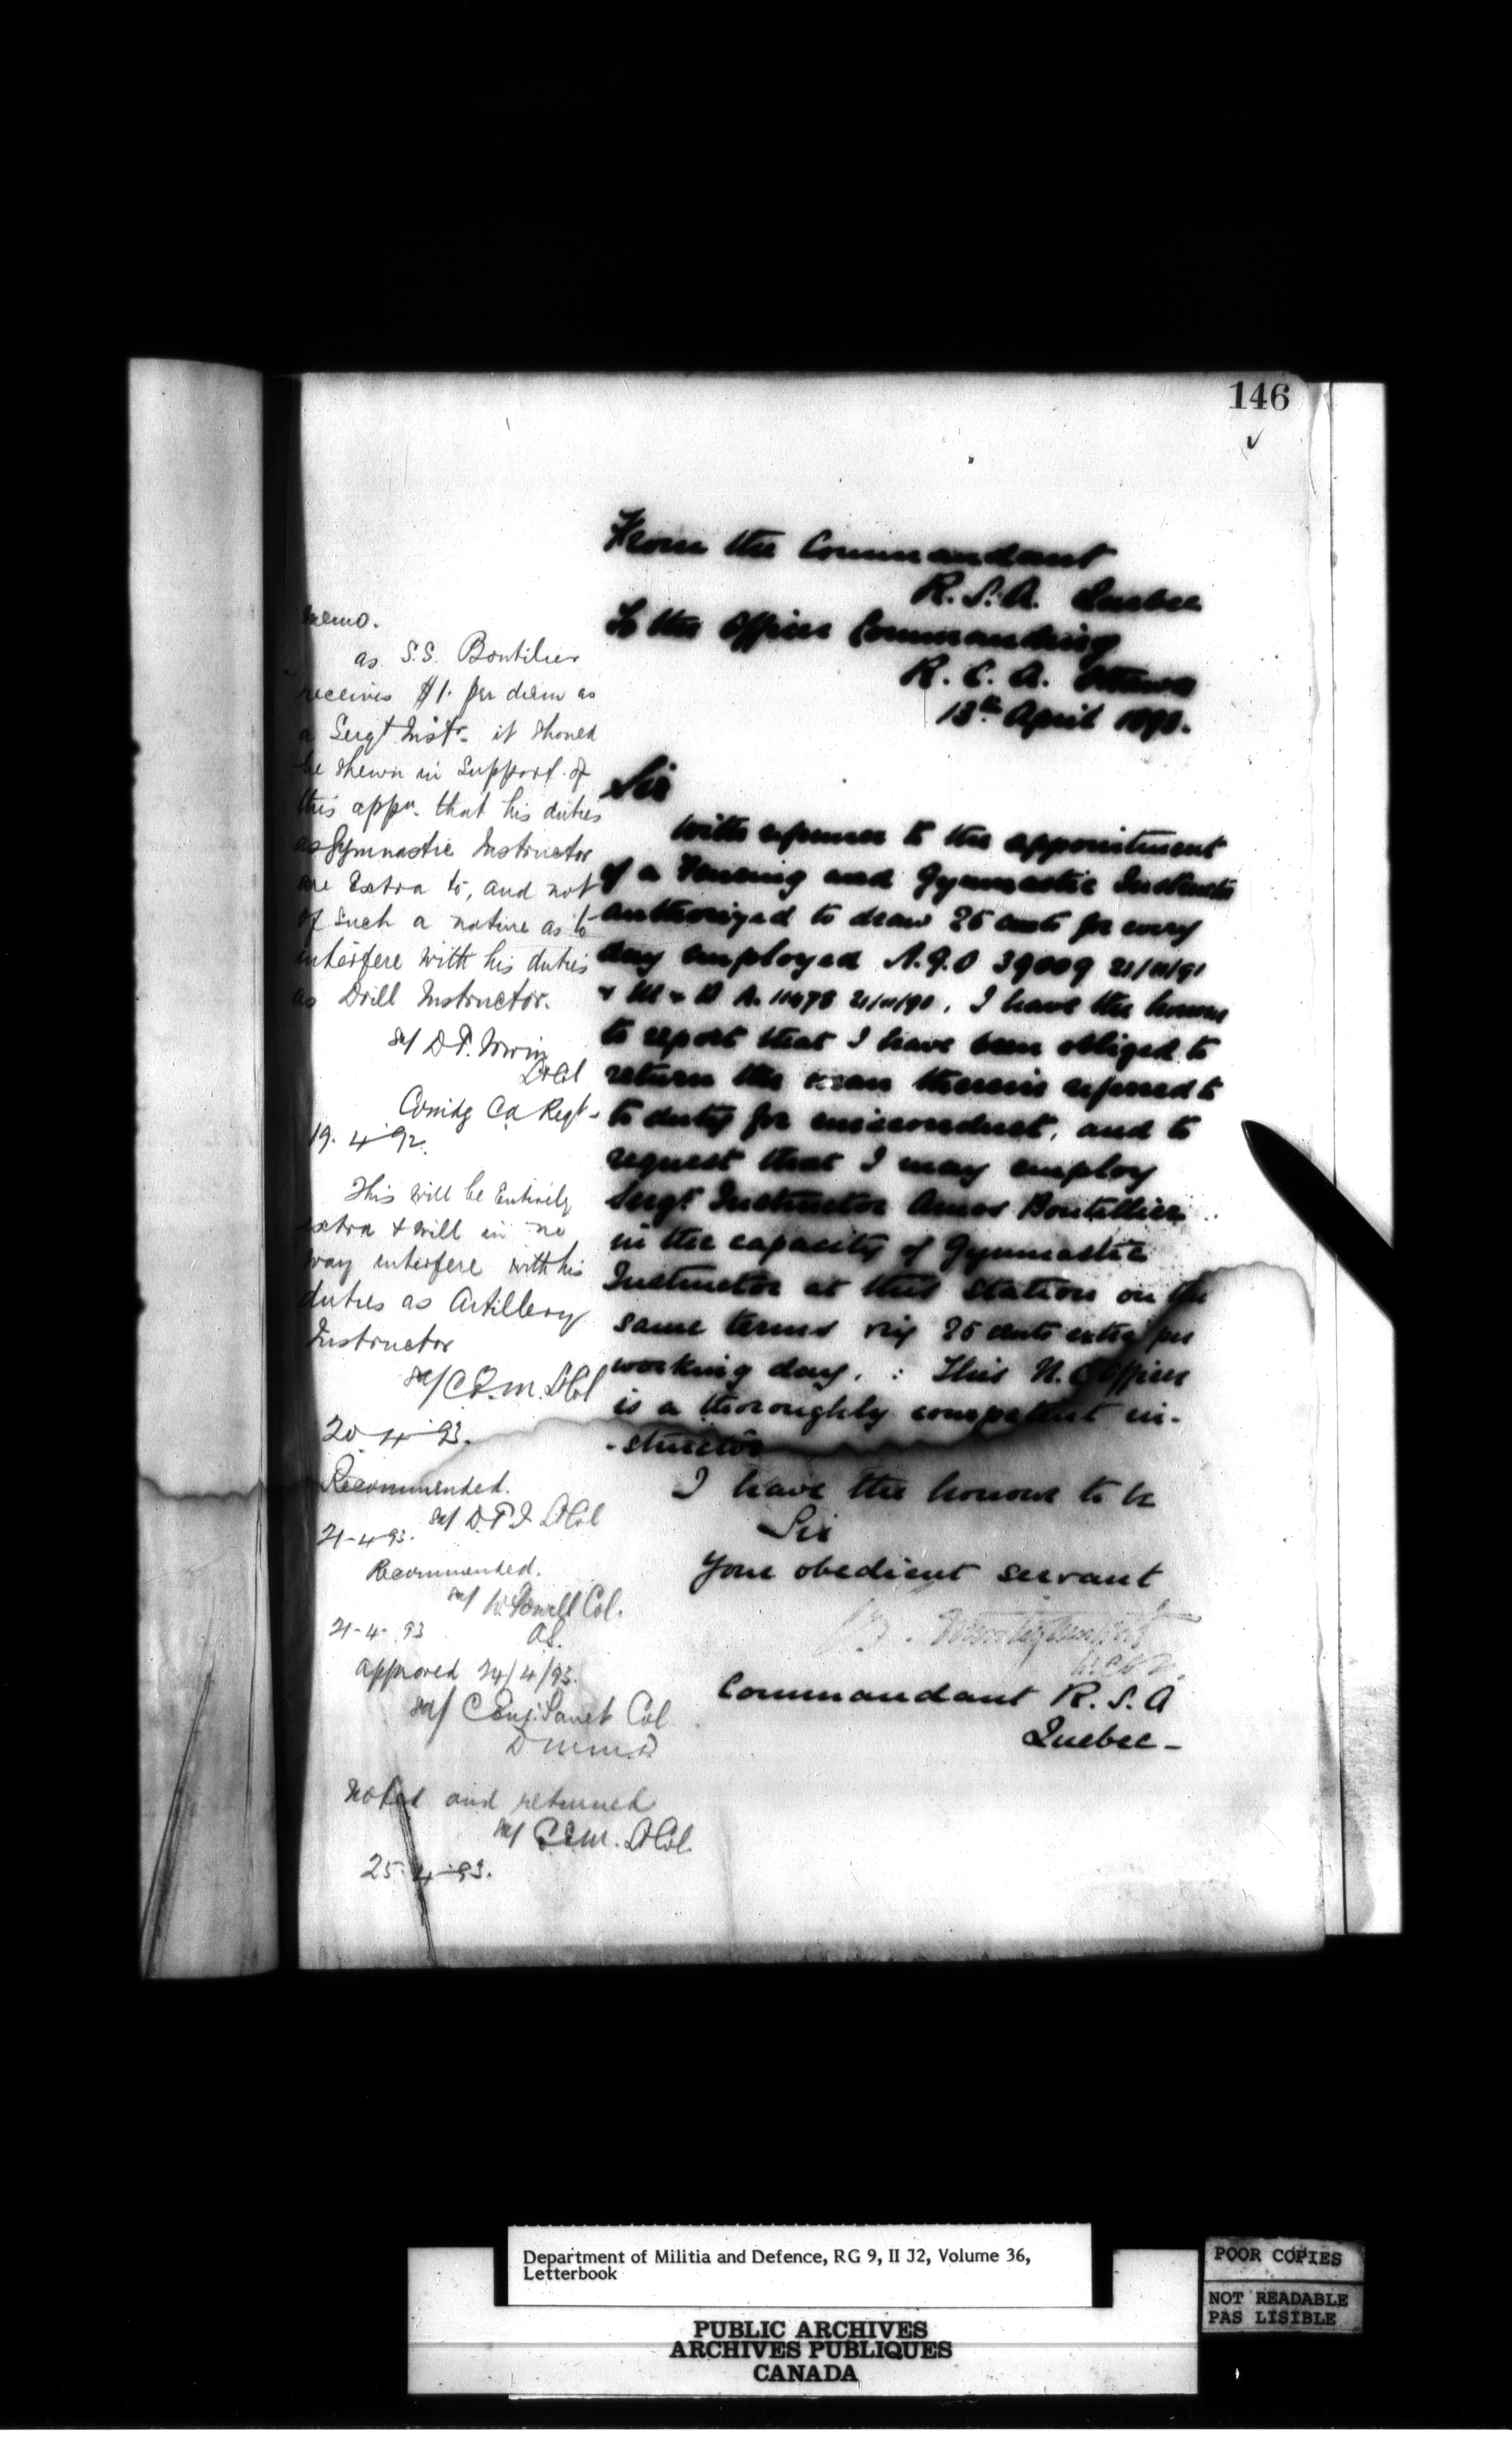 146
From the Commandant
R.S.A. Quebec
To the Officer Commanding
R.C.A. Ottawa
13th April 1893.
Sir
With reference to the appointment
of a Fencing and Gymnastic Instructor
authorized to draw 25 cents for every
day employed A.G.O 39009
I have the honour
to report that I have been obliged to
return the man therein referred to
to duty for misconduct, and to
request that I may employ
Sergt Instructor Amos Boutellier
in the capacity of Gymnastic
Instructor at this Station on the
same terms viz 25 cents extra per
working day. : This N.C Officer
is a thoroughly competent in-
-structor
I have the honour to be
Sir
Your obedient servant
Commandant R.S.A
Quebec -
Memo.
as S.S. Boutilier
receives $1. per diem as
a Sergt Instr. it should
be shewn in support of
this appn. that his duties
as Gymnastic Instructor
are Extra to, and not
of such a nature as to
interfere with his duties
as Drill Instructor.
sd/ D.T. Irwin
Lt Col
Comdg Ca Regt -
19. 4 92.
This will be Entirely
extra & will in no
way interfere with his
duties as Artillery
Instructor
sd/ C.E.M. Lt Col
20 4 93.
Recommended.
sd/ D.T.I Lt Col
21-4-93.
Recommended.
sd/ W. Powell Col.
21-4-93 AG.
approved 24/4/93.
sd/ C Eug. Panet Col
D M M & D
Noted and returned
sd/ C.E.M. Lt Col
25-4-93.
Department of Militia and Defence, RG 9, II J2, Volume 36,
Letterbook
PUBLIC ARCHIVES
ARCHIVES PUBLIQUES
CANADA
POOR COPIES
NOT READABLE
PAS LISIBLE